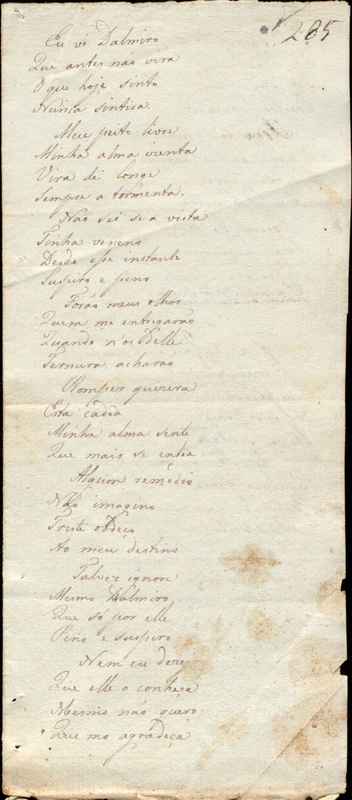 205
Eu vi Dalmiro
Que antes não vira
O que hoje sinto
Nunca sentira
Meu peito livre
Minha alma izenta
Vira de longe
Sempre a tormenta.
Não sei se a vista
Tinha veneno
Desde esse instante
Suspiro e peno
Forão meus olhos
Quem me entregarão
Quando n'os delle
Ternura acharão
Romper quizera
Esta cadêa
Minha alma sente
Que mais se enlea
Algum remedio
Não imagino
Triste obdeço
Ao meu destino
Talvez ignore
Mesmo Dalmiro
Que só por elle
Peno e suspiro
Nem eu dezejo
Que elle o conheça
Mesmo não quero
Que mo agradeça